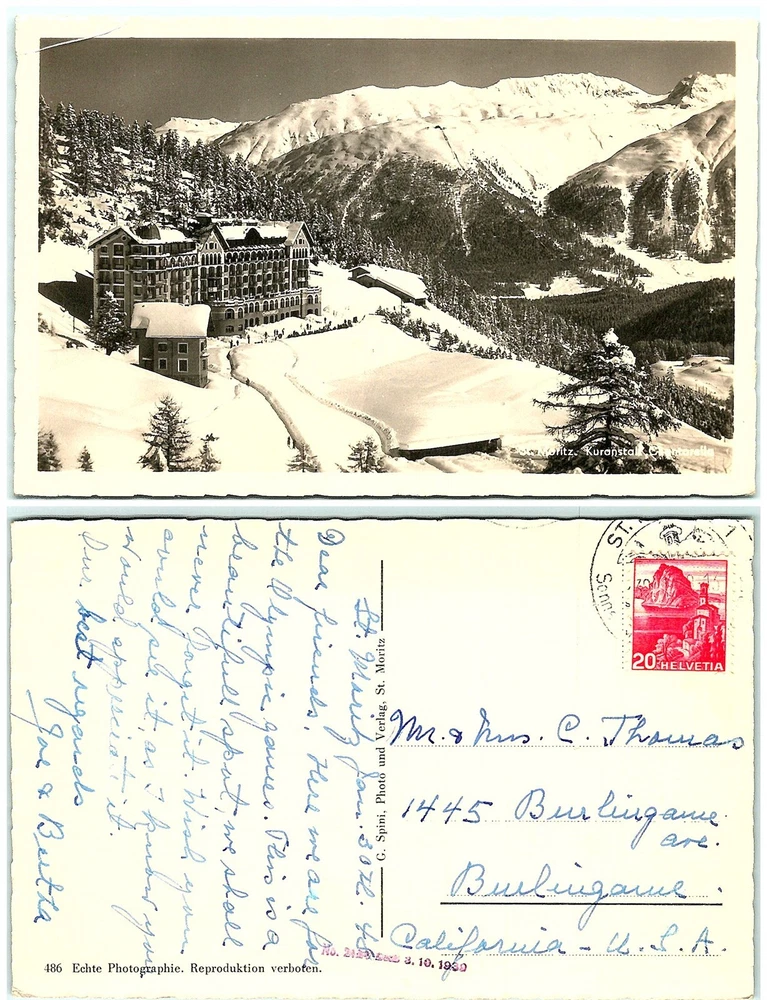 St. Moritz. Kuranstalt Chantarella
St. Moritz Jan. 30th. 48
Dear friends. Here we are for
the Olympic games. This is a
beautiful spot, we shall
never forget it. Wish you
could see it, as I know you
would appreciate it.
Our best regards
Joe & Bertha
G. Spini, Photo und Verlag, St. Moritz
ST.
20 HELVETIA
Mr. & Mrs. C. Thomas
1445 Burlingame
ave.
Burlingame
California - U.S.A.
486 Echte Photographie. Reproduktion verboten.
No. 3.10.1939